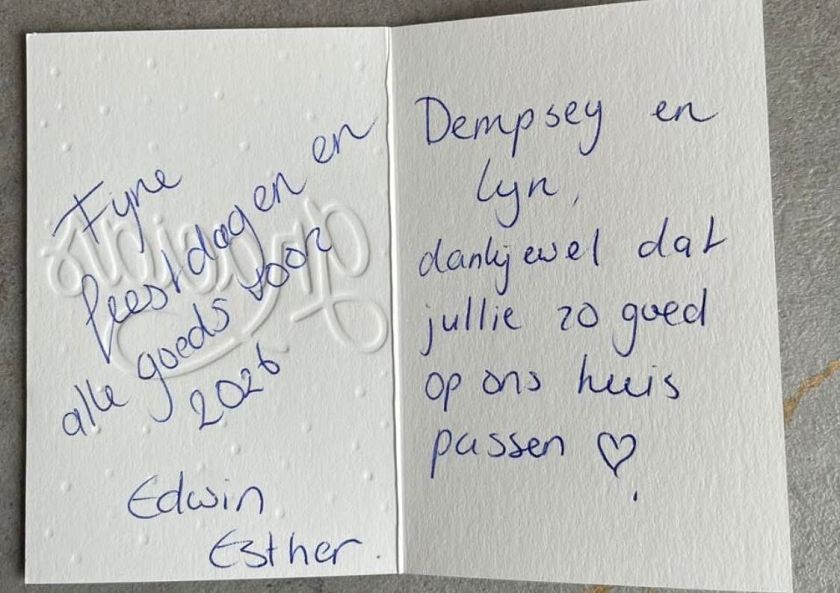 Fijne
feestdagen en
alle goeds voor
2026
Edwin
Esther.
Dempsey en
Lyn,
dankjewel dat
jullie zo goed
op ons huis
passen ♡.